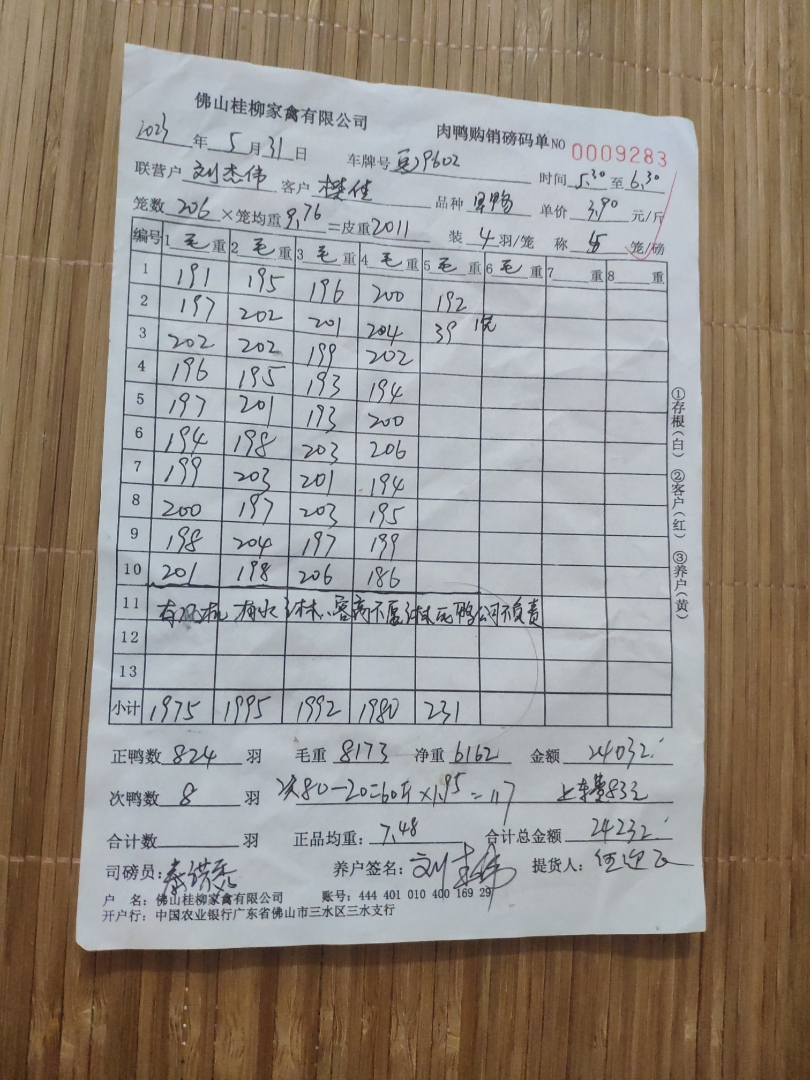 佛山桂柳家禽有限公司 肉鸭购销磅码单 NO 0009283
2023 年 5 月 31 日 车牌号 9602 时间 5.30 至 6.30
联营户 刘杰伟 客户 樊佳 品种 单价 3.90 元/斤
笼数 206 ×笼均重 9.76 =皮重 2011 装 4 羽/笼 称 5 笼/磅
编号 1 毛 重 2 毛 重 3 毛 重 4 毛 重 5 毛 重 6 毛 重 7 重 8 重
1 191 195 196 200 192
2 197 202 201 204 39
3 202 202 199 202
4 196 195 193 194
5 197 201 193 200
6 194 198 203 206
7 199 203 201 194
8 200 197 203 195
9 198 204 197 199
10 201 198 206 186
11 有风机 有水 客商不愿 死鸭公司不负责
12
13
小计 1975 1995 1992 1980 231
正鸭数 824 羽 毛重 8173 净重 6162 金额 24032
次鸭数 8 羽 次80-20=60斤×1.95=117 上车费83元
合计数 羽 正品均重: 7.48 合计总金额 24232
司磅员: 养户签名: 刘杰伟 提货人:
户 名: 佛山桂柳家禽有限公司 账号: 444 401 010 400 169 29
开户行: 中国农业银行广东省佛山市三水区三水支行
①存根(白) ②客户(红) ③养户(黄)